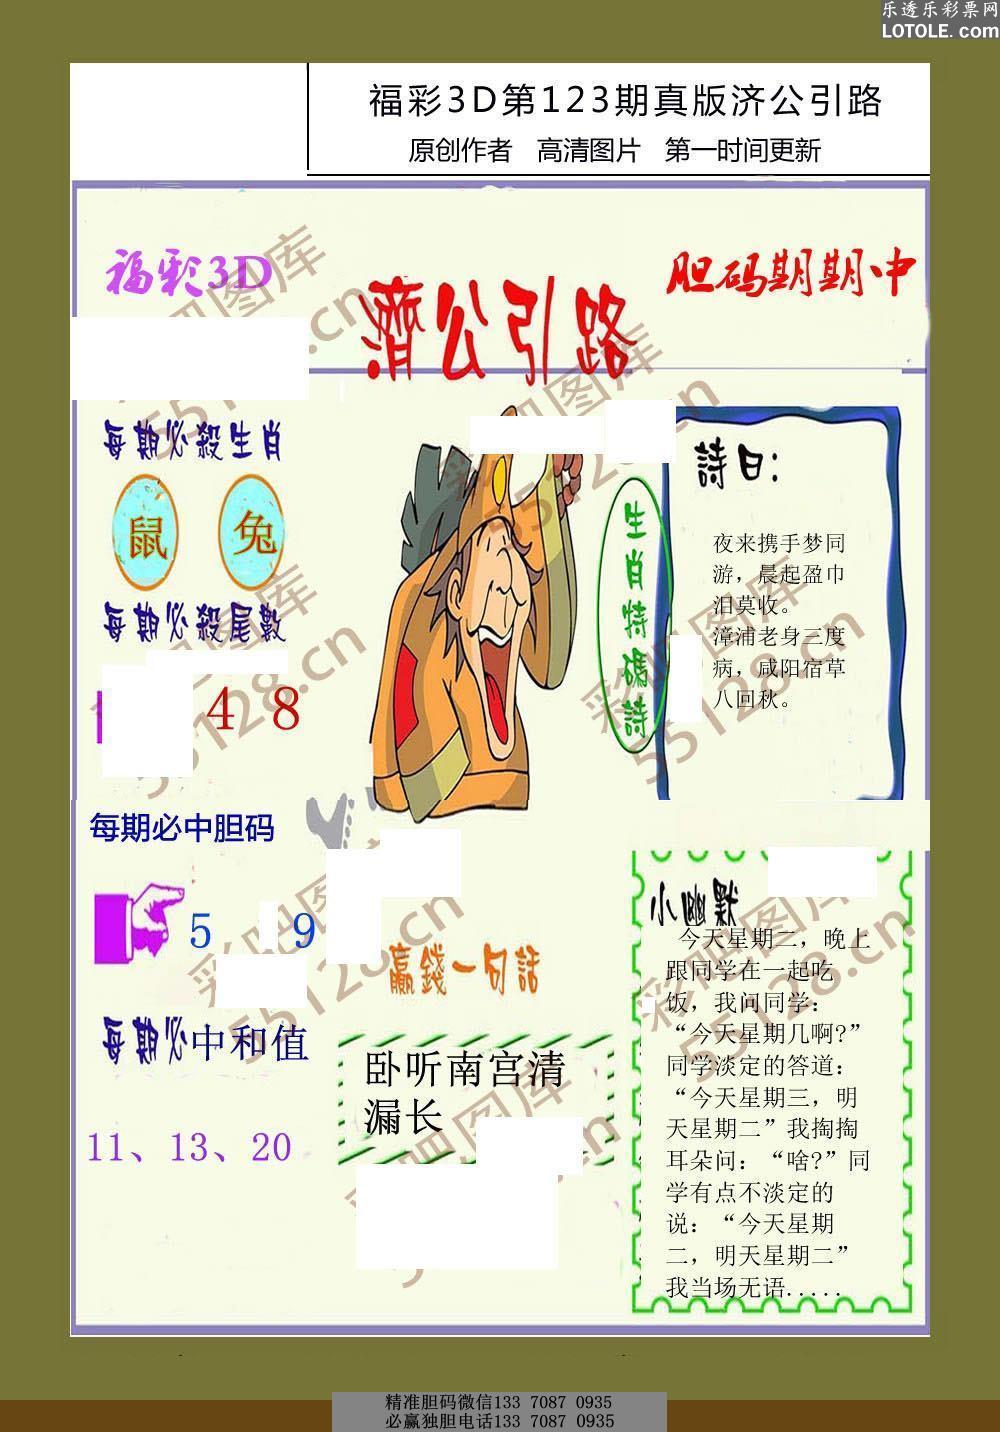 乐透乐彩票网
LOTOLE.com
福彩3D第123期真版济公引路
原创作者 高清图片 第一时间更新
福彩3D
濟公引路
胆码期期中
每期必殺生肖
鼠 兔
每期必殺尾數
4 8
每期必中胆码
5 9
每期必中和值
11、13、20
生肖特碼詩
詩曰：
夜来携手梦同
游，晨起盈巾
泪莫收。
漳浦老身三度
病，咸阳宿草
八回秋。
贏錢一句話
卧听南宫清
漏长
小幽默
今天星期二，晚上
跟同学在一起吃
饭，我问同学：
“今天星期几啊?”
同学淡定的答道：
“今天星期三，明
天星期二”我掏掏
耳朵问：“啥?”同
学有点不淡定的
说：“今天星期
二，明天星期二”
我当场无语.....
彩吧图库
55128.cn
精准胆码微信133 7087 0935
必赢独胆电话133 7087 0935